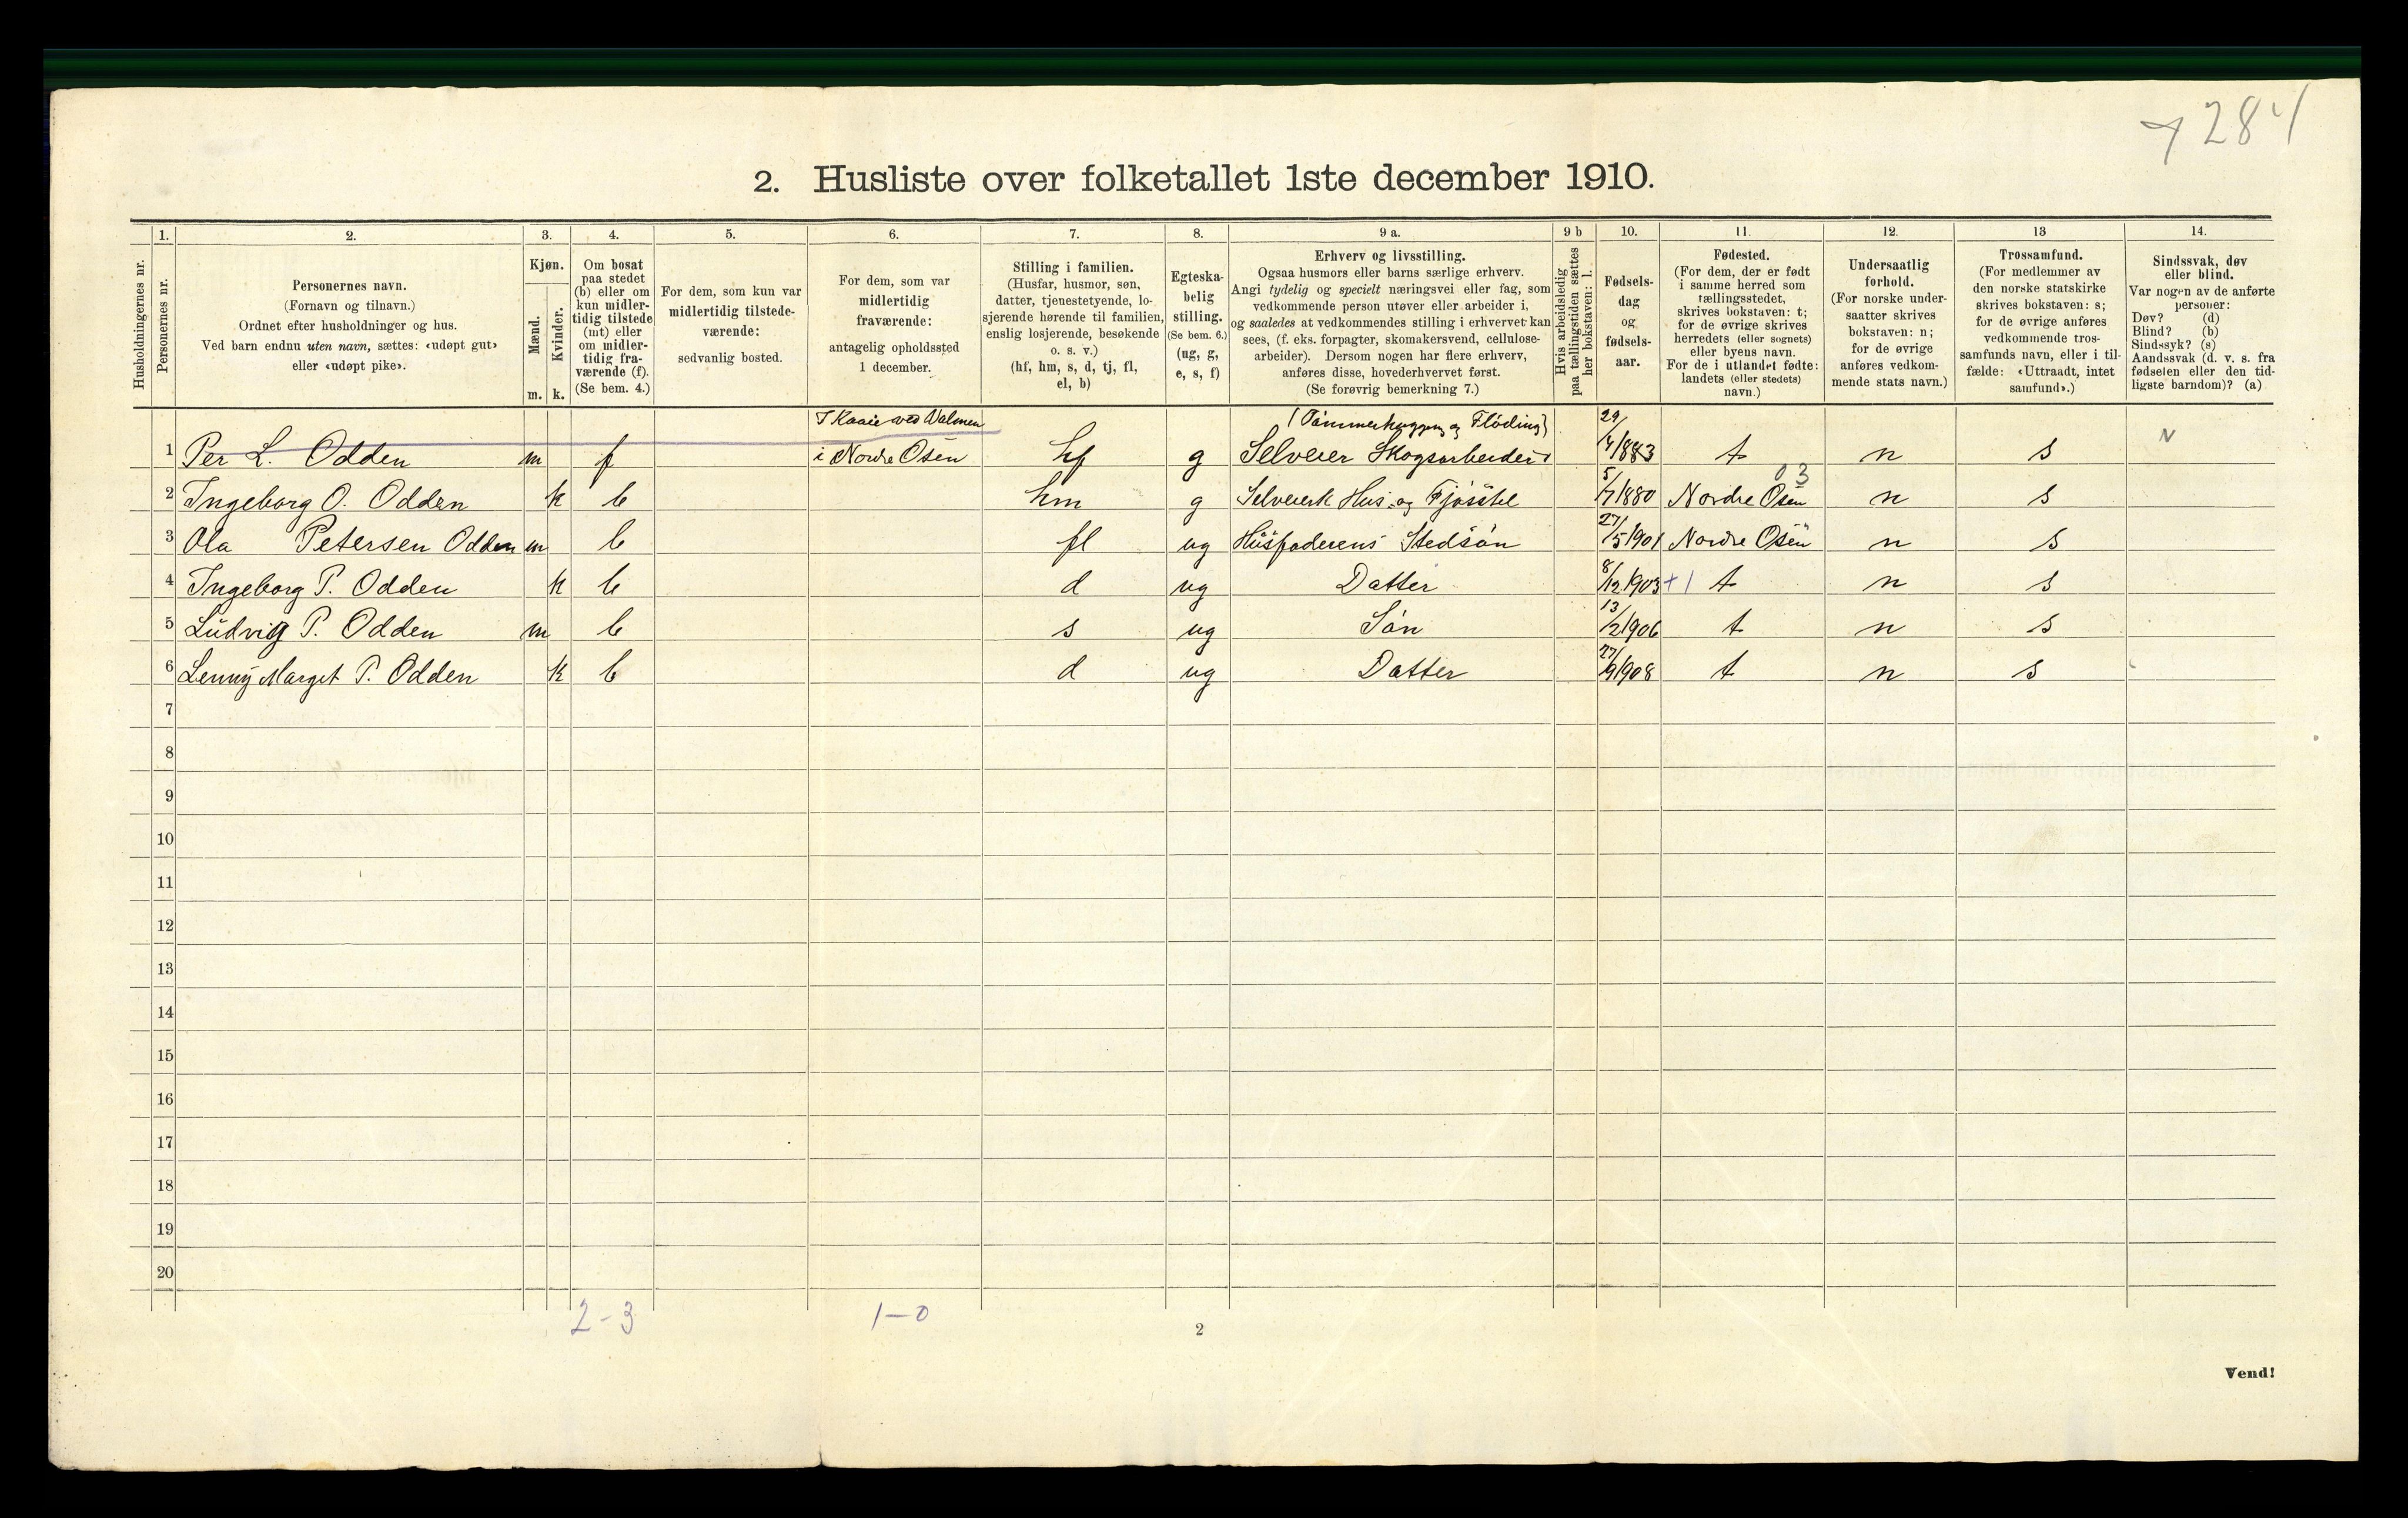 284
2. Husliste over folketallet 1ste december 1910.
Husholdningernes nr.
1.
Personernes nr.
2.
Personernes navn.
(Fornavn og tilnavn.)
Ordnet efter husholdninger og hus.
Ved barn endnu uten navn, sættes: «udøpt gut»
eller «udøpt pike».
3.
Kjøn.
Mænd.
Kvinder.
m. k.
4.
Om bosat
paa stedet
(b) eller om
kun midler-
tidig tilstede
(mt) eller
om midler-
tidig fra-
værende (f).
(Se bem. 4.)
5.
For dem, som kun var
midlertidig tilstede-
værende:
sedvanlig bosted.
6.
For dem, som var
midlertidig
fraværende:
antagelig opholdssted
1 december.
7.
Stilling i familien.
(Husfar, husmor, søn,
datter, tjenestetyende, lo-
sjerende hørende til familien,
enslig losjerende, besøkende
o. s. v.)
(hf, hm, s, d, tj, fl,
el, b)
8.
Egteska-
belig
stilling.
(Se bem. 6.)
(ug, g,
e, s, f)
9 a.
Erhverv og livsstilling.
Ogsaa husmors eller barns særlige erhverv.
Angi tydelig og specielt næringsvei eller fag, som
vedkommende person utøver eller arbeider i,
og saaledes at vedkommendes stilling i erhvervet kan
sees, (f. eks. forpagter, skomakersvend, cellulose-
arbeider). Dersom nogen har flere erhverv,
anføres disse, hovederhvervet først.
(Se forøvrig bemerkning 7.)
9 b
Hvis arbeidsledig
paa tællingstiden sættes
her bokstaven: l.
10.
Fødsels-
dag
og
fødsels-
aar.
11.
Fødested.
(For dem, der er født
i samme herred som
tællingsstedet,
skrives bokstaven: t;
for de øvrige skrives
herredets (eller sognets)
eller byens navn.
For de i utlandet fødte:
landets (eller stedets)
navn.)
12.
Undersaatlig
forhold.
(For norske under-
saatter skrives
bokstaven: n;
for de øvrige
anføres vedkom-
mende stats navn.)
13
Trossamfund.
(For medlemmer av
den norske statskirke
skrives bokstaven: s;
for de øvrige anføres
vedkommende tros-
samfunds navn, eller i til-
fælde: «Uttraadt, intet
samfund».)
14.
Sindssvak, døv
eller blind.
Var nogen av de anførte
personer:
Døv? (d)
Blind? (b)
Sindssyk? (s)
Aandssvak (d. v. s. fra
fødselen eller den tid-
ligste barndom)? (a)
I Kaaie ved Valmen (Tømmerhugging og Fløding)
1 Per L. Odden m f i Nordre Osen hf g Selveier Skogsarbeider 29/4 1883 t n s
03
2 Ingeborg O. Odden k b hm g Selveierk Hus- og Fjøsstel 5/7 1880 Nordre Osen n s
3 Ola Petersen Odden m b fl ug Husfaderens Stedsøn 27/5 1901 Nordre Osen n s
4 Ingeborg P. Odden k b d ug Datter 8/12 1903 +1 t n s
5 Ludvig P. Odden m b s ug Søn 13/2 1906 t n s
6 Lenny Marget P. Odden k b d ug Datter 27/9 1908 t n s
7
8
9
10
11
12
13
14
15
16
17
18
19
20
2-3 1-0
2
Vend!